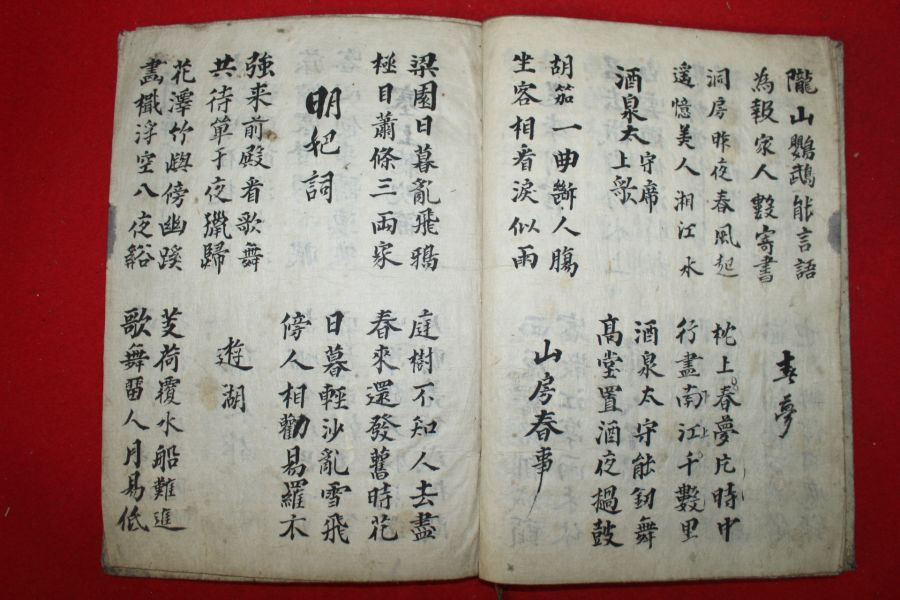 隴山鸚鵡能言語
為報家人數寄書
春夢
洞房昨夜春風起
遙憶美人湘江水
枕上春夢片時中
行盡南江千數里
酒泉太守席上歌
酒泉太守能釰舞
高堂置酒夜撾鼓
胡笳一曲斷人膓
坐客相看淚似雨
山房春事
梁園日暮亂飛鴉
極目蕭條三兩家
庭樹不知人去盡
春來還發舊時花
明妃詞
日暮輕沙亂雪飛
傍人相勸易羅衣
強來前殿看歌舞
共待單于夜獵歸
遊湖
花澤竹嶼傍幽蹊
畵檝浮空入夜谿
芰荷覆水船難進
歌舞留人月易低